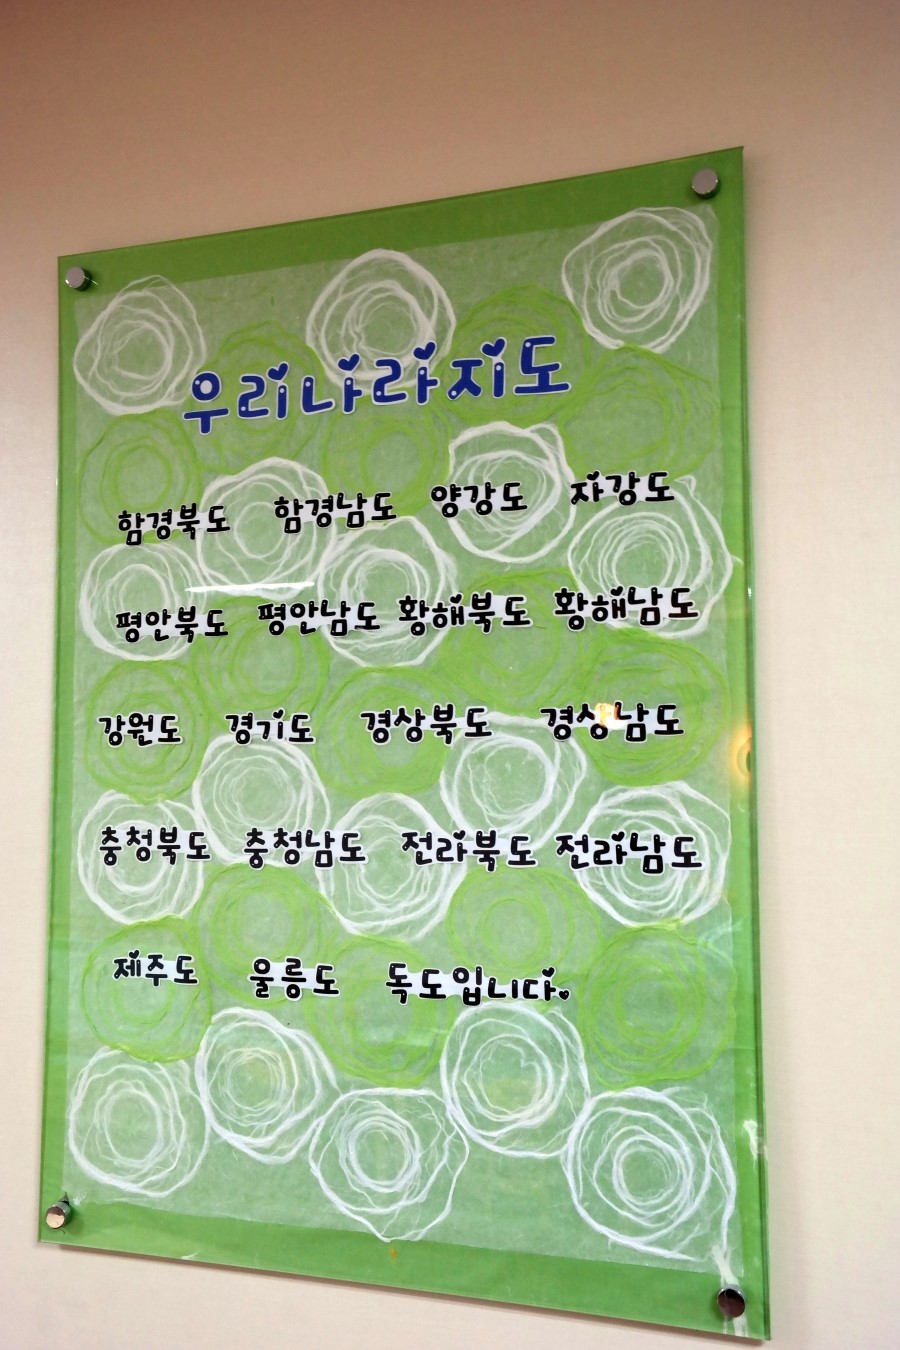 우리나라지도
함경북도 함경남도 양강도 자강도
평안북도 평안남도 황해북도 황해남도
강원도 경기도 경상북도 경상남도
충청북도 충청남도 전라북도 전라남도
제주도 울릉도 독도입니다.